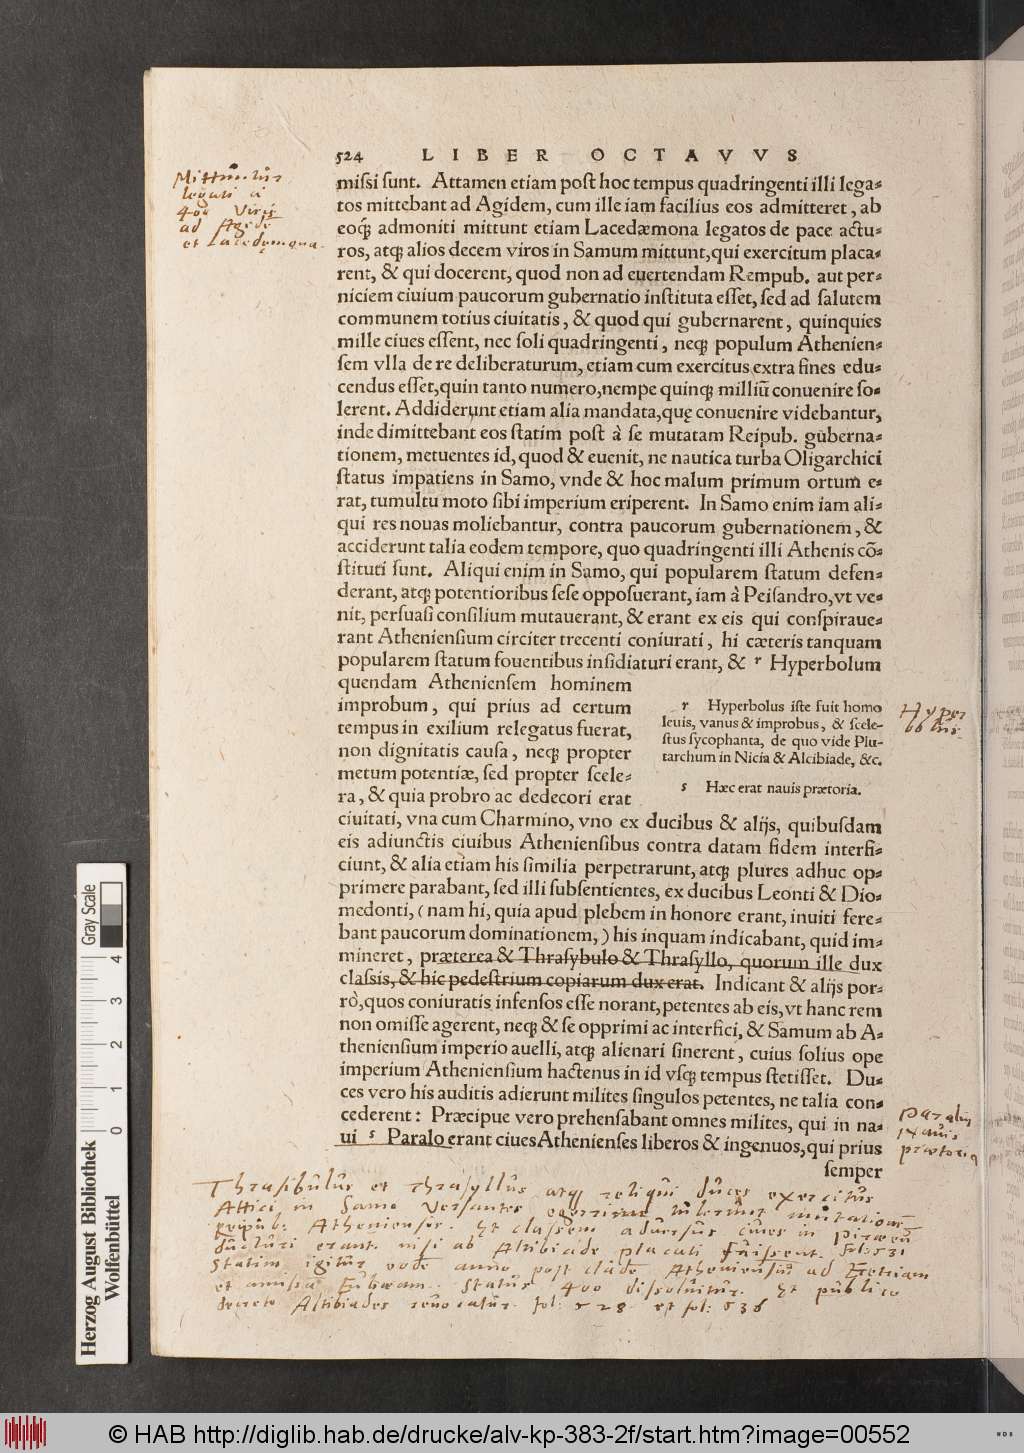 524 LIBER OCTAVVS
missi sunt. Attamen etiam post hoc tempus quadringenti illi lega=
tos mittebant ad Agidem, cum ille iam facilius eos admitteret, ab
eoq́; admoniti mittunt etiam Lacedæmona legatos de pace actu=
ros, atq; alios decem viros in Samum mittunt, qui exercitum placa=
rent, & qui docerent, quod non ad euertendam Rempub. aut per=
niciem ciuium paucorum gubernatio instituta esset, sed ad salutem
communem totius ciuitatis, & quod qui gubernarent, quinquies
mille ciues essent, nec soli quadringenti, neq; populum Athenien=
sem vlla de re deliberaturum, etiam cum exercitus extra fines edu=
cendus esset, quin tanto numero, nempe quinq; milliũ conuenire so=
lerent. Addiderunt etiam alia mandata, quę conuenire videbantur,
inde dimittebant eos statim post à se mutatam Reipub. guberna=
tionem, metuentes id, quod & euenit, ne nautica turba Oligarchici
status impatiens in Samo, vnde & hoc malum primum ortum e=
rat, tumultu moto sibi imperium eriperent. In Samo enim iam ali=
qui res nouas moliebantur, contra paucorum gubernationem, &
acciderunt talia eodem tempore, quo quadringenti illi Athenis cõ=
stituti sunt. Aliqui enim in Samo, qui popularem statum defen=
derant, atq; potentioribus sese opposuerant, iam à Peisandro, vt ve=
nit, persuasi consilium mutauerant, & erant ex eis qui conspiraue=
rant Atheniensium circiter trecenti coniurati, hi cæteris tanquam
popularem statum fouentibus insidiaturi erant, & r Hyperbolum
quendam Atheniensem hominem
improbum, qui prius ad certum
tempus in exilium relegatus fuerat,
non dignitatis causa, neq; propter
metum potentiæ, sed propter scele=
ra, & quia probro ac dedecori erat
r Hyperbolus iste fuit homo
leuis, vanus & improbus, & scele-
stus sycophanta, de quo vide Plu-
tarchum in Nicia & Alcibiade, &c.
s Hæc erat nauis prætoria.
ciuitati, vna cum Charmino, vno ex ducibus & alijs, quibusdam
eis adiunctis ciuibus Atheniensibus contra datam fidem interfi=
ciunt, & alia etiam his similia perpetrarunt, atq; plures adhuc op=
primere parabant, sed illi subsentientes, ex ducibus Leonti & Dio=
medonti, (nam hi, quia apud plebem in honore erant, inuiti fere=
bant paucorum dominationem,) his inquam indicabant, quid im=
mineret, præterea & Thrasybulo & Thrasyllo, quorum ille dux
classis, & hic pedestrium copiarum dux erat. Indicant & alijs por=
rò, quos coniuratis infensos esse norant, petentes ab eis, vt hanc rem
non omisse agerent, neq; & se opprimi ac interfici, & Samum ab A=
theniensium imperio auelli, atq; alienari sinerent, cuius solius ope
imperium Atheniensium hactenus in id vsq; tempus stetisset. Du=
ces vero his auditis adierunt milites singulos petentes, ne talia con=
cederent: Præcipue vero prehensabant omnes milites, qui in na=
ui s Paralo erant ciues Athenienses liberos & ingenuos, qui prius
semper
Mittuntur
legati à
400 viris
ad Agidē
et Lacedęmona.
Hyper
bolus.
Paralus
nauis
praetoria
Thrasibulus et Thrasyllus atq; reliqui duces exercitus
Attici in Samo versantes mutationē
reipub: Atheniensis. et classem aduersus ciues in Piraeū
ducturi erant nisi ab Alcibiade placati fuissent. fol: 531
Statim igitur eodē anno post cladē Atheniensiū ad Eretriam
et amissa Eubœam. status 400 dissoluitur. et publico
decreto Alcibiades reuocatur. fol: 528 et fol: 536
Gray Scale
0 1 2 3 4
Herzog August Bibliothek
Wolfenbüttel
© HAB http://diglib.hab.de/drucke/alv-kp-383-2f/start.htm?image=00552